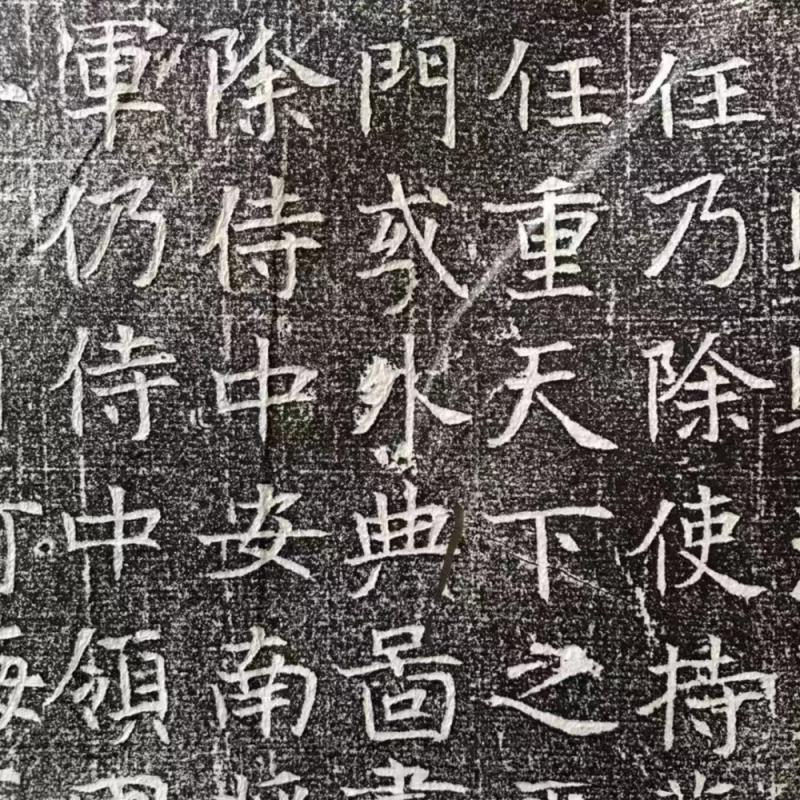 任乃除使持
任重天下之
門或外典啚
除侍中安南
軍仍侍中領